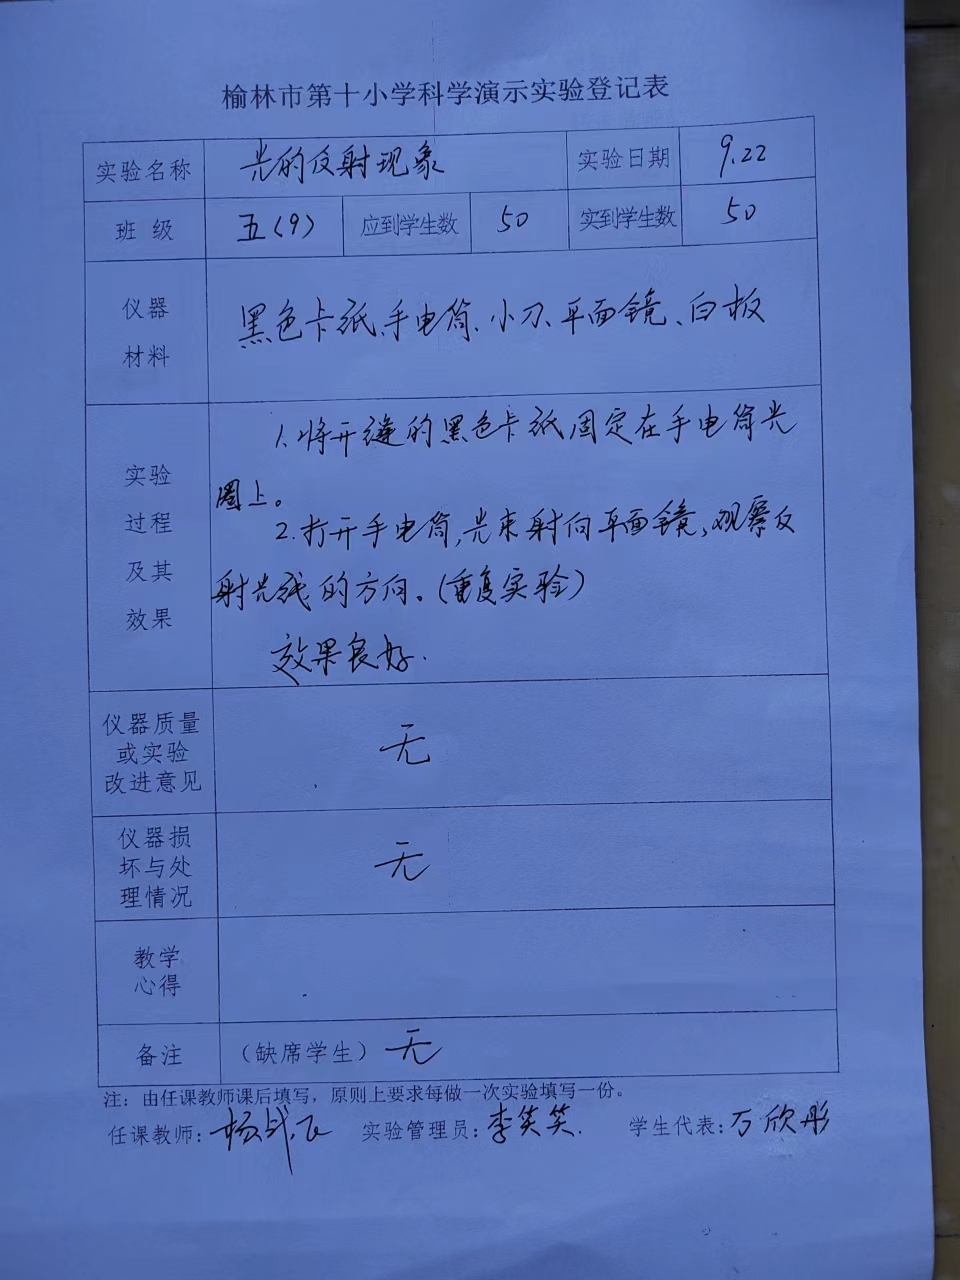 榆林市第十小学科学演示实验登记表
实验名称 光的反射现象 实验日期 9.22
班 级 五(9) 应到学生数 50 实到学生数 50
仪器
材料
黑色卡纸、手电筒、小刀、平面镜、白板
实验
过程
及其
效果
1.将开缝的黑色卡纸固定在手电筒光
圈上。
2.打开手电筒,光束射向平面镜,观察反
射光线的方向。(重复实验)
效果良好.
仪器质量
或实验
改进意见
无
仪器损
坏与处
理情况
无
教学
心得
备注 (缺席学生) 无
注：由任课教师课后填写，原则上要求每做一次实验填写一份。
任课教师: 杨 实验管理员: 李笑笑. 学生代表: 万欣彤